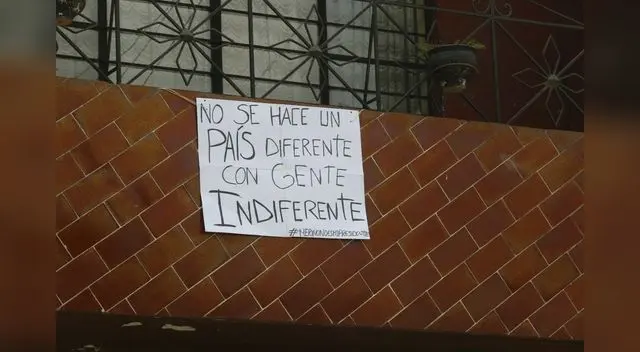 NO SE HACE UN
PAÍS DIFERENTE
CON GENTE
INDIFERENTE